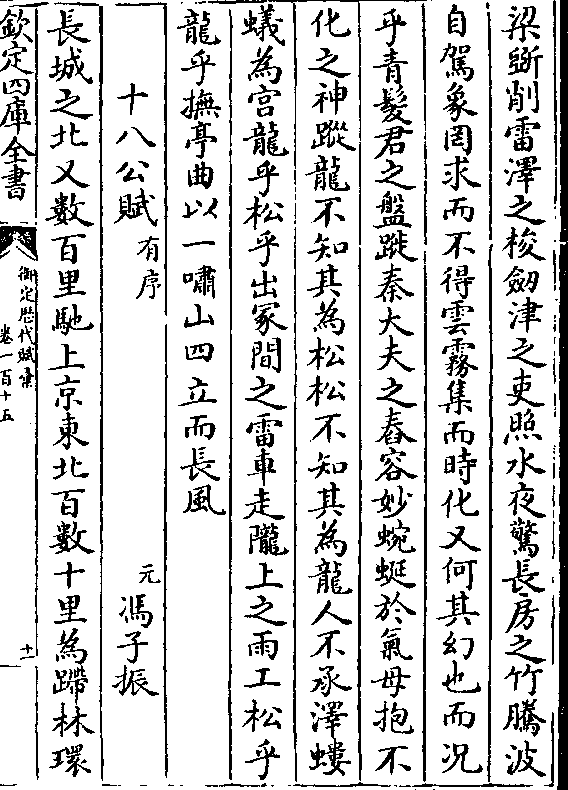 梁斲削雷澤之梭劒津之吏照水夜驚長房之竹騰波
自駕象罔求而不得雲霧集而時化又何其幻也而况
乎青髮君之盤蹤秦大夫之舂容妙蜿蜒於氣母抱不
化之神蹤龍不知其為松松不知其為龍人不承澤螻
蟻為宫龍乎松乎出冢間之雷車走隴上之雨工松乎
龍乎撫亭曲以一嘯山四立而長風
十八公賦有序 元馮子振
長城之北又數百里馳上京東北百數十里為蹛林環
欽定四庫全書 御定歴代賦彙 卷一百十五 十一